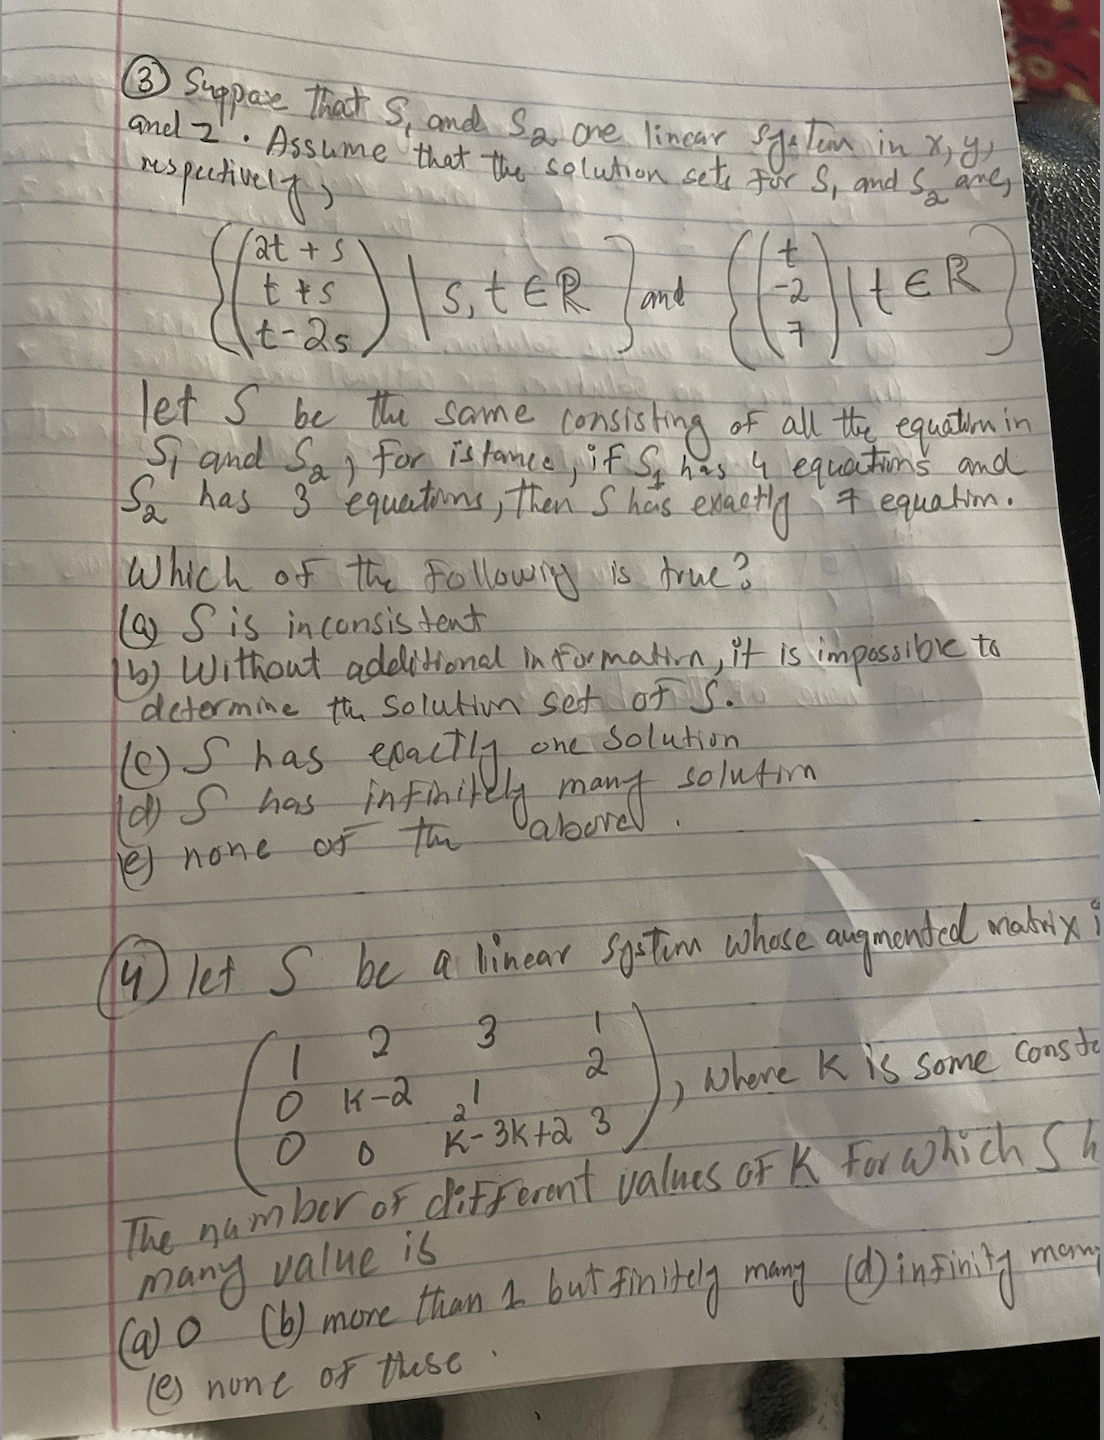 ③ Suppose that S₁ and S₂ are linear system in x, y,
and z. Assume that the solution sets for S₁ and S₂ are,
respectively,
{(2t + s
t + s
t - 2s) | s, t ∈ ℝ} and {(t
-2
7) | t ∈ ℝ}
let S be the same consisting of all the equation in
S₁ and S₂, for istance, if S₁ has 4 equations and
S₂ has 3 equations, then S has exactly 7 equation.
Which of the following is true?
(a) S is inconsistent
(b) Without additional information, it is impossible to
determine the solution set of S.
(c) S has exactly one solution
(d) S has infinitely many solution
(e) none of the above.
④ let S be a linear system whose augmented matrix i
(1 2 3 1
0 k-2 1 2
0 0 k²-3k+2 3), where k is some consta
The number of different values of k for which S h
many value is
(a) 0 (b) more than 1 but finitely many (d) infinity many
(e) none of these.